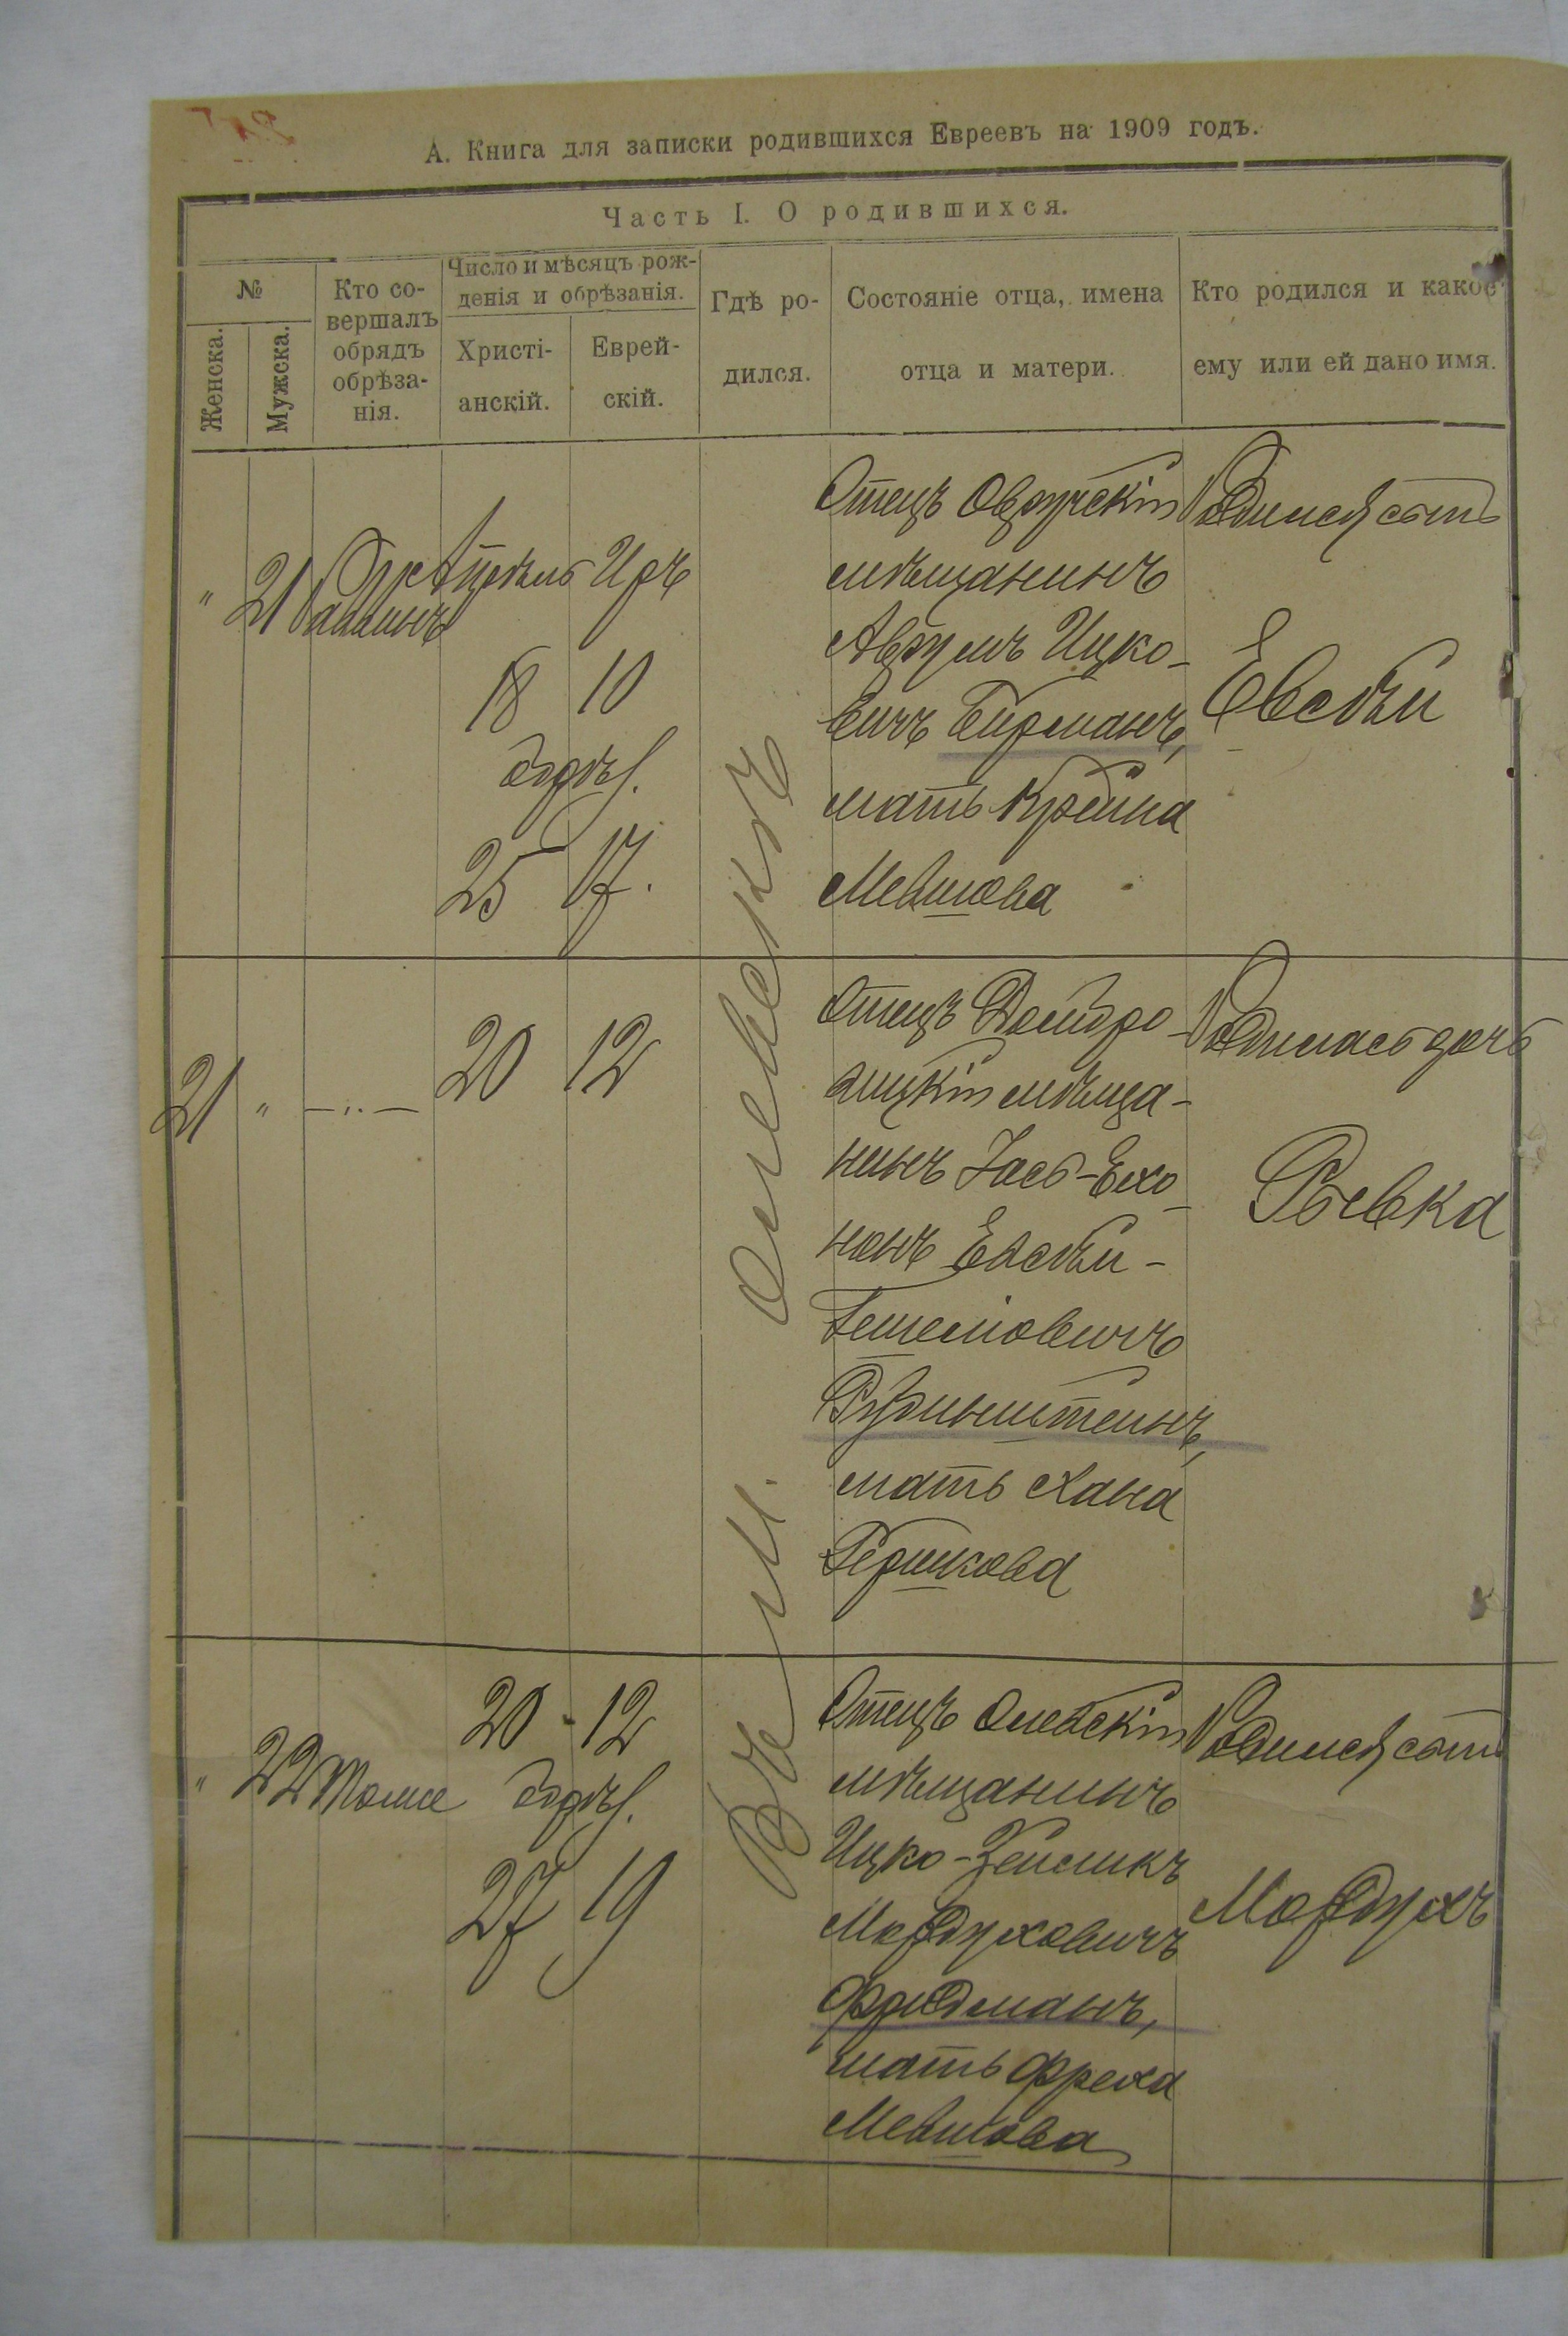 А. Книга для записки родившихся Евреевъ на 1909 годъ.
Часть I. О родившихся.
№
Женска.
Мужска.
Кто со-
вершалъ
обрядъ
обрѣза-
нія.
Число и мѣсяцъ рож-
денія и обрѣзанія.
Христі-
анскій.
Еврей-
скій.
Гдѣ ро-
дился.
Состояніе отца, имена
отца и матери.
Кто родился и какое
ему или ей дано имя.
" 21
Апрѣль Иръ
18 10
обрѣз.
25 17.
Въ м. Олевскѣ
Отецъ Овручскій
мѣщанинъ
Аврумъ Ицко-
вичъ Бирманъ,
мать Крейна
Мевшова
Родился сынъ
Евсѣй
21 " — ,, —
20 12
Отецъ Домбро-
вицкій мѣща-
нинъ Іось-Ехо-
нонъ Евсѣй-
Гешеліовичъ
Рубинштейнъ,
мать Хана
Гершкова
Родилась дочь
Ривка
" 22 Тоже
20 - 12
обрѣз.
27 19
Отецъ Олевскій
мѣщанинъ
Ицко-Зейликъ
Мордуховичъ
Фридманъ,
мать Фрейда
Мевшова
Родился сынъ
Мордухъ